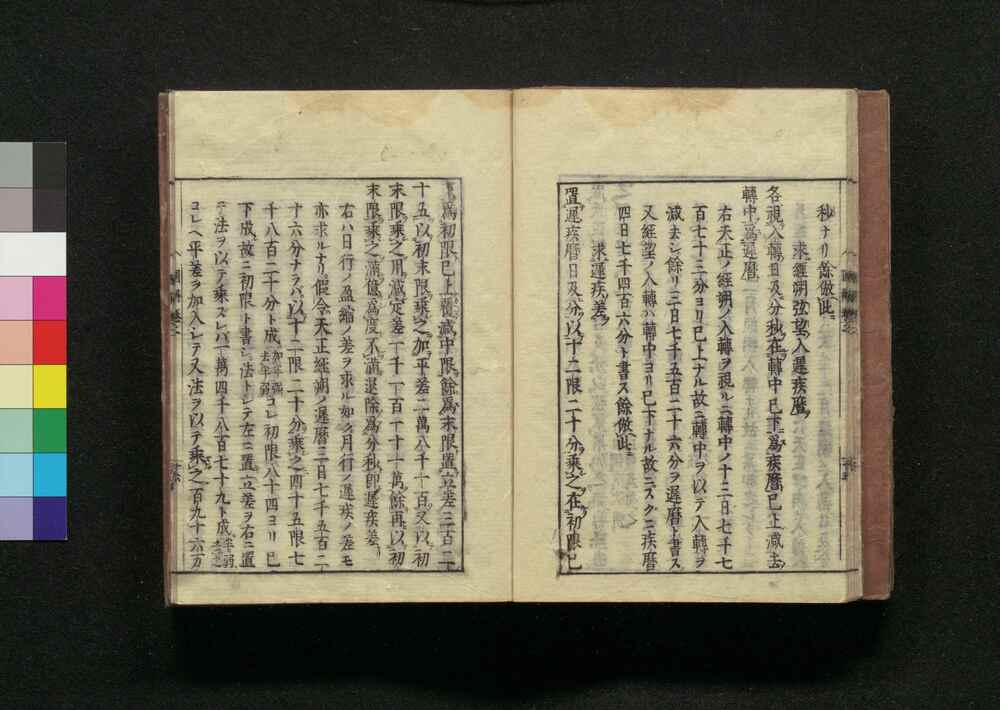 秒ナリ餘倣此
求經朔弦望入遲疾曆
各視入轉日及分秒在轉中已下爲疾曆已上減去
轉中爲遲曆
右天正ノ經朔ノ入轉ヲ視ルニ轉中ノ十三日七千七
百七十三分ヨリ已上ナル故ニ轉中ヲ以テ入轉ヲ
減去シ餘リ三日七千五百二十六分ヲ遲曆ト書ス
又經望ノ入轉ハ轉中ヨリ已下ナル故ニスクニ疾曆
四日七千四百六分ト書ス餘倣此
求遲疾差
置遲疾曆日及分以十二限二十分乘之在初限已
下爲初限已上覆減中限餘爲末限置立差三百二
十五以初末限乘之加平差二萬八千一百又以初
末限乘之用減定差一千一百一十一萬餘再以初
末限乘之滿億爲度不滿退除爲分秒卽遲疾差
右ハ日行ノ盈縮ノ差ヲ求ル如ク月行ノ遲疾ノ差モ
亦求ルナリ假令天正經朔ノ遲曆三日七千五百二
十六分ナラバ以十二限二十分乘之四十五限七
千八百二十分ト成コレ初限八十四ヨリ已
下成故ニ初限ト書シ法トシテ左ニ置立差ヲ右ニ置
テ法ヲ以テ乘スレバ一萬四千八百七十九ト成
コレヘ平差ヲ加入シテ又法ヲ以テ乘之百九十六万